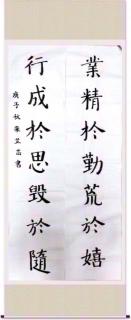 業精於勤荒於嬉
行成於思毀於隨
庚子秋朱芝喜書